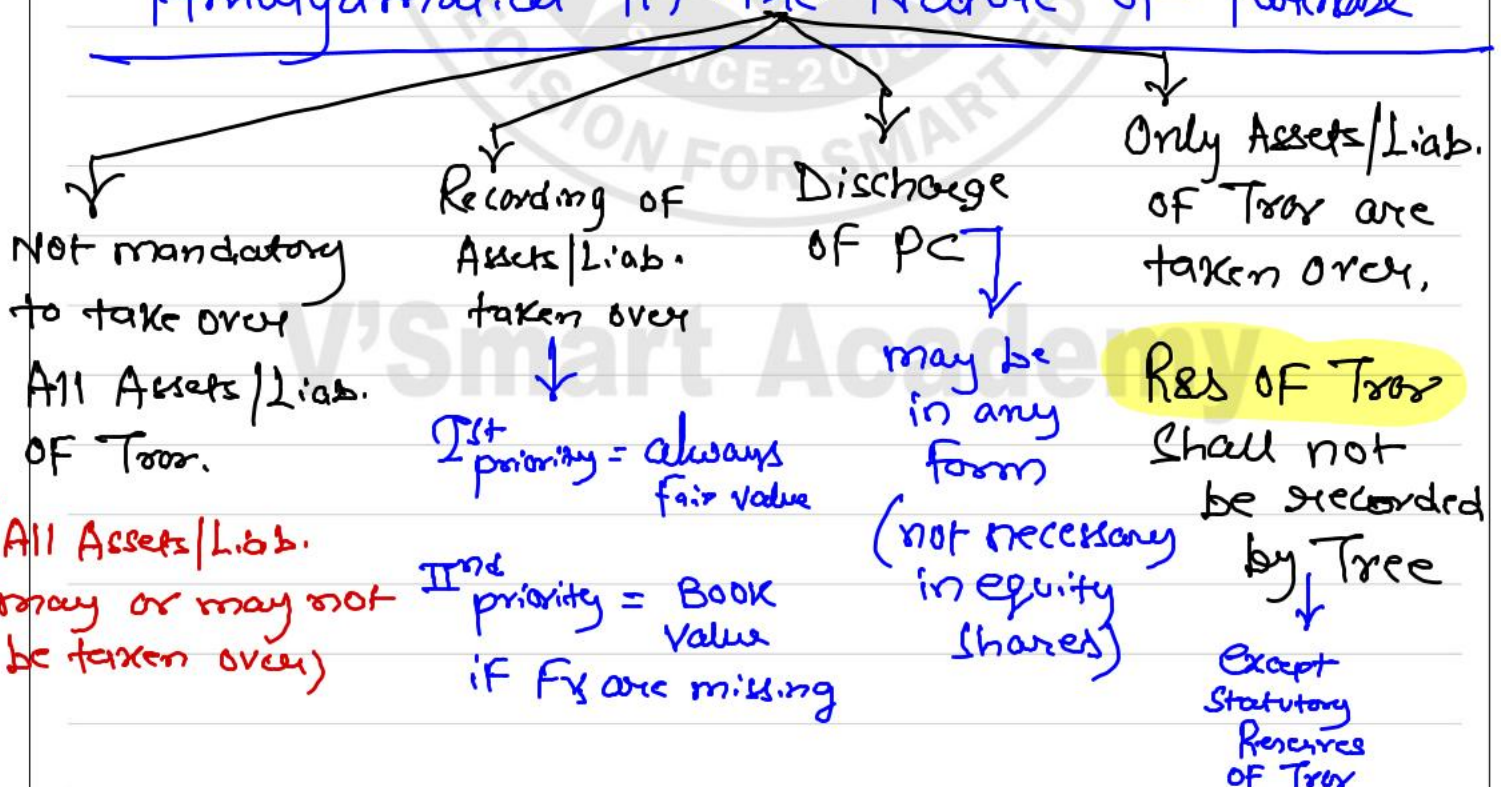 Amalgamation in the Nature of Purchase
SINCE-2005
ECISION FOR SMART ED
V'Smart Academy
Not mandatory
to take over
All Assets/Liab.
OF Tror.
All Assets/Liab.
may or may not
be taken over)
Recording of
Assets/Liab.
taken over
Ist priority = always
fair value
IInd priority = Book
Value
if FVs are missing
Discharge
of PC
may be
in any
form
(not necessary
in equity
shares)
Only Assets/Liab.
of Tror are
taken over,
R&S OF Tror
Shall not
be recorded
by Tree
Except
Statutory
Reserves
OF Tror